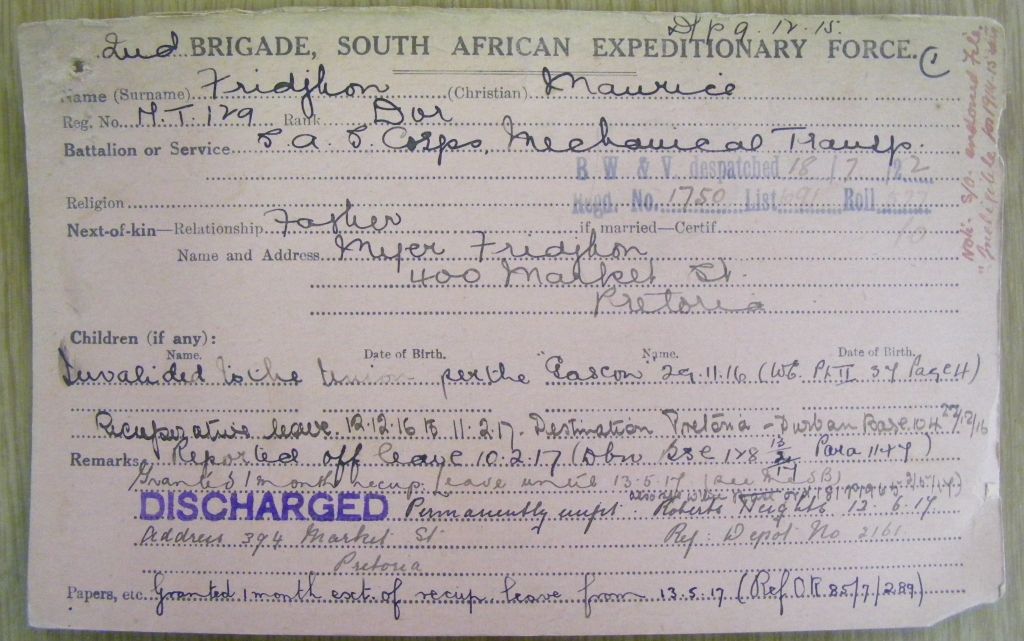 D/P 9.12.15.
2nd BRIGADE, SOUTH AFRICAN EXPEDITIONARY FORCE. C
Name (Surname) Fridjhon (Christian) Maurice
Reg. No. M.T. 129 Rank Dvr
Battalion or Service S.A.S. Corps, Mechanical Transp.
B W & V despatched 18/7/22
Religion Regd. No. 1750 List 691 Roll 577
Next-of-kin—Relationship Father if married—Certif. 10
Name and Address Meyer Fridjhon
400 Market St.
Pretoria
Children (if any):
Name. Date of Birth. Name. Date of Birth.
Invalided to the Union per the "Gascon" 29.11.16 (Pt II 37 Page 4)
Recuperative leave 12.12.16 to 11.2.17. Destination Pretoria - Durban Base 104 27/12/16
Remarks Reported off leave 10.2.17 (Dbn Bse 128 13/2/17 Para 1147)
Granted 1 month recup. leave until 13.5.17
DISCHARGED Permanently unfit. Roberts Heights 12.6.17.
Address 394 Market St Ref: Depot No 2161
Pretoria
Papers, etc. Granted 1 month ext. of recup leave from 13.5.17 (Ref O.R 85/7/289)